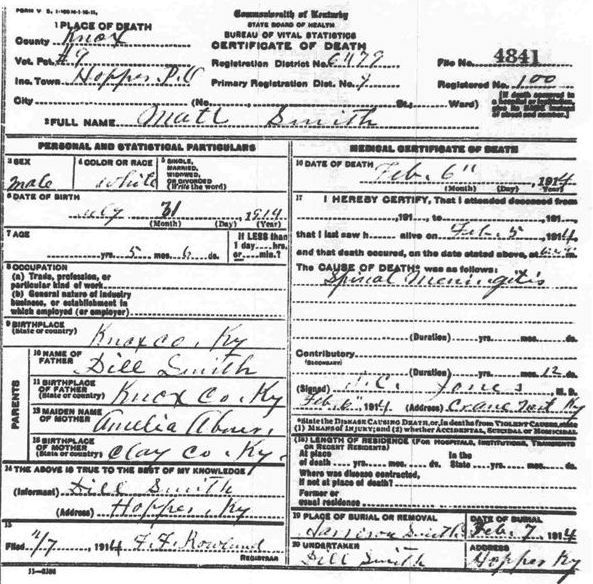 FORM V. S. 1-
Commonwealth of Kentucky
STATE BOARD OF HEALTH
BUREAU OF VITAL STATISTICS
CERTIFICATE OF DEATH
1 PLACE OF DEATH
County Knox
Vot. Pct. #9
Inc. Town Hopper
City
Registration District No. 6479
Primary Registration Dist. No. 7
File No. 4841
Registered No. 100
(No. St.; Ward)
[If death occurred in a hospital or institution, give its NAME instead of street and number.]
2 FULL NAME Matt Smith
PERSONAL AND STATISTICAL PARTICULARS
3 SEX
male
4 COLOR OR RACE
white
5 SINGLE, MARRIED, WIDOWED, OR DIVORCED
(Write the word)
6 DATE OF BIRTH
31 1914
(Month) (Day) (Year)
7 AGE
yrs. 5 mos. 6 ds.
If LESS than 1 day hrs. or min.?
8 OCCUPATION
(a) Trade, profession, or particular kind of work
(b) General nature of industry business, or establishment in which employed (or employer)
9 BIRTHPLACE
(State or country)
Knox co. Ky
PARENTS
10 NAME OF FATHER
Dill Smith
11 BIRTHPLACE OF FATHER
(State or country)
Knox Co. Ky
12 MAIDEN NAME OF MOTHER
Amelia Abner
13 BIRTHPLACE OF MOTHER
(State or country)
Clay co Ky.
14 THE ABOVE IS TRUE TO THE BEST OF MY KNOWLEDGE
(Informant) Dill Smith
(Address) Hopper Ky
15
Filed 2/7 1914 F. F. Rowland
REGISTRAR
MEDICAL CERTIFICATE OF DEATH
16 DATE OF DEATH
Feb. 6" 1914
(Month) (Day) (Year)
17 I HEREBY CERTIFY, That I attended deceased from
, 191 , to , 191 ,
that I last saw h alive on Feb. 5, 1914,
and that death occured, on the date stated above, at m.
The CAUSE OF DEATH* was as follows:
Spinal Meningitis
(Duration) yrs. mos. ds.
Contributory
(SECONDARY)
(Duration) yrs. mos. 12 ds.
(Signed) C. Jones M. D.
Feb. 6" 1914 (Address) Crane Nest Ky
*State the DISEASE CAUSING DEATH, or, in deaths from VIOLENT CAUSES, state (1) MEANS OF INJURY; and (2) whether ACCIDENTAL, SUICIDAL or HOMICIDAL
18 LENGTH OF RESIDENCE (FOR HOSPITALS, INSTITUTIONS, TRANSIENTS OR RECENT RESIDENTS)
At place of death yrs. mos. ds. In the State yrs. mos. ds.
Where was disease contracted, if not at place of death?
Former or usual residence
19 PLACE OF BURIAL OR REMOVAL
Smith
DATE OF BURIAL
Feb. 7 1914
20 UNDERTAKER
Dill Smith
ADDRESS
Hopper Ky